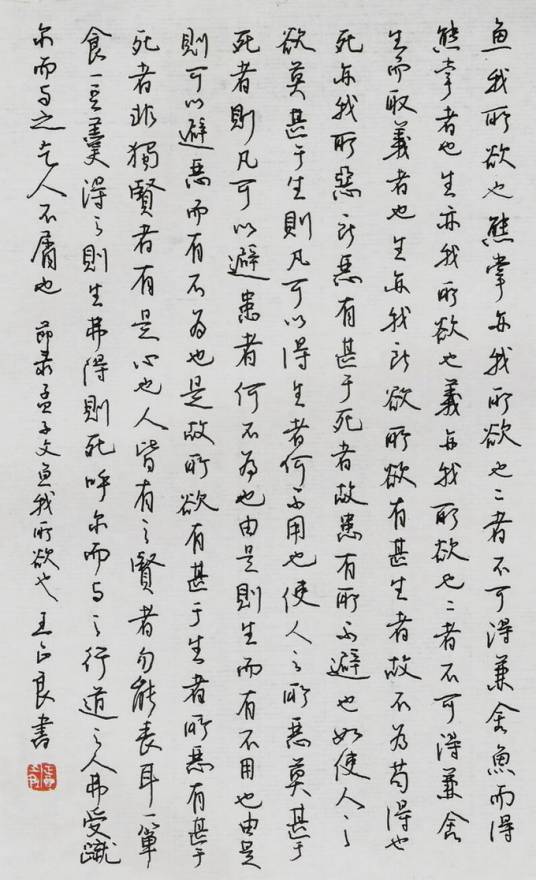 魚我所欲也熊掌亦我所欲也二者不可得兼舍魚而得
熊掌者也生亦我所欲也義亦我所欲也二者不可得兼舍
生而取義者也生亦我所欲所欲有甚生者故不為苟得也
死亦我所惡所恶有甚于死者故患有所不避也如使人之
欲莫甚于生則凡可以得生者何不用也使人之所恶莫甚于
死者則凡可以避患者何不為也由是則生而有不用也由是
則可以避恶而有不為也是故所欲有甚于生者所恶有甚于
死者非獨賢者有是心也人皆有之賢者勿能丧耳一簞
食一豆羹得之則生弗得則死呼尔而与之行道之人弗受蹴
尔而与之乞人不屑也 節录孟子文魚我所欲也 王正良書